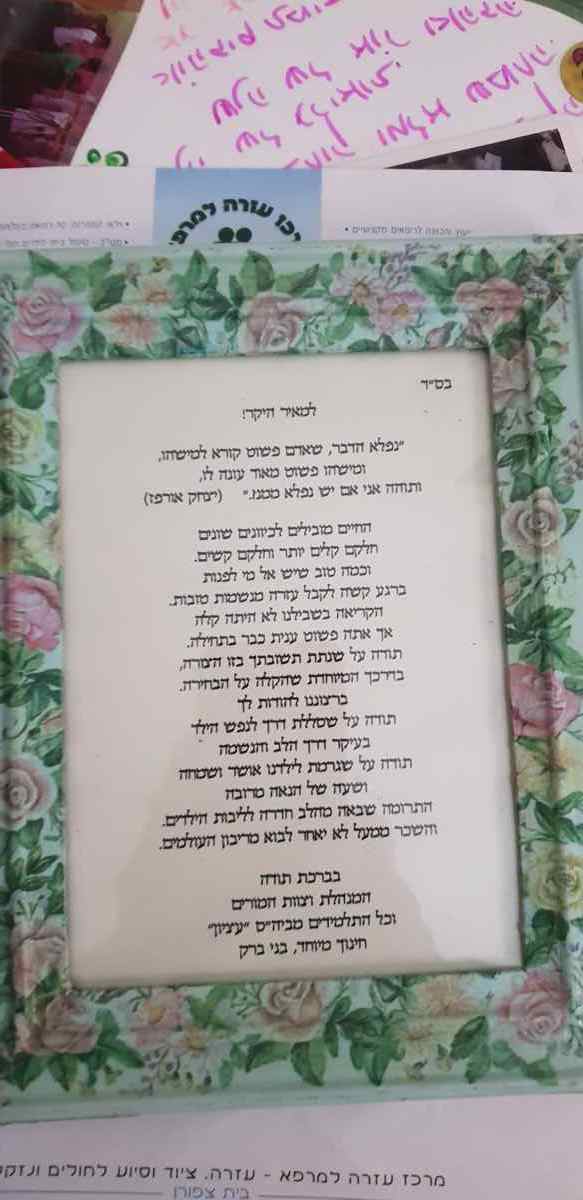 מרכז עזרה למרפא
יעוץ והכוונה לרפואים מקצועיים •
בס"ד
למאיר היקר!
"נפלא הדבר, שאדם פשוט קורא למישהו,
ומישהו פשוט מאוד עונה לו,
ותוהה אני אם יש נפלא ממנו." (יצחק אורפז)
החיים מובילים לכיוונים שונים
חלקם קלים יותר וחלקם קשים.
וכמה טוב שיש אל מי לפנות
ברגע קשה לקבל עזרה מנשמות טובות.
הקריאה בשבילנו לא היתה קלה
אך אתה פשוט ענית כבר בתחילה.
תודה על שנתת תשובתך בזו הצורה,
בדרכך המיוחדת שהקלה על הבחירה.
ברצוננו להודות לך
תודה על שסללת דרך לנפש הילד
בעיקר דרך הלב והנשמה
תודה על שגרמת לילדנו אושר ושמחה
ושעה של הנאה מרובה
התרומה שבאה מהלב חדרה לליבות הילדים.
והשכר ממעל לא יאחר לבוא מריבון העולמים.
בברכת תודה
המנהלת וצוות המורים
וכל התלמידים מביה"ס "עציון"
חינוך מיוחד, בני ברק
מרכז עזרה למרפא - עזרה. ציוד וסיוע לחולים ונזקק
בית ציפורן